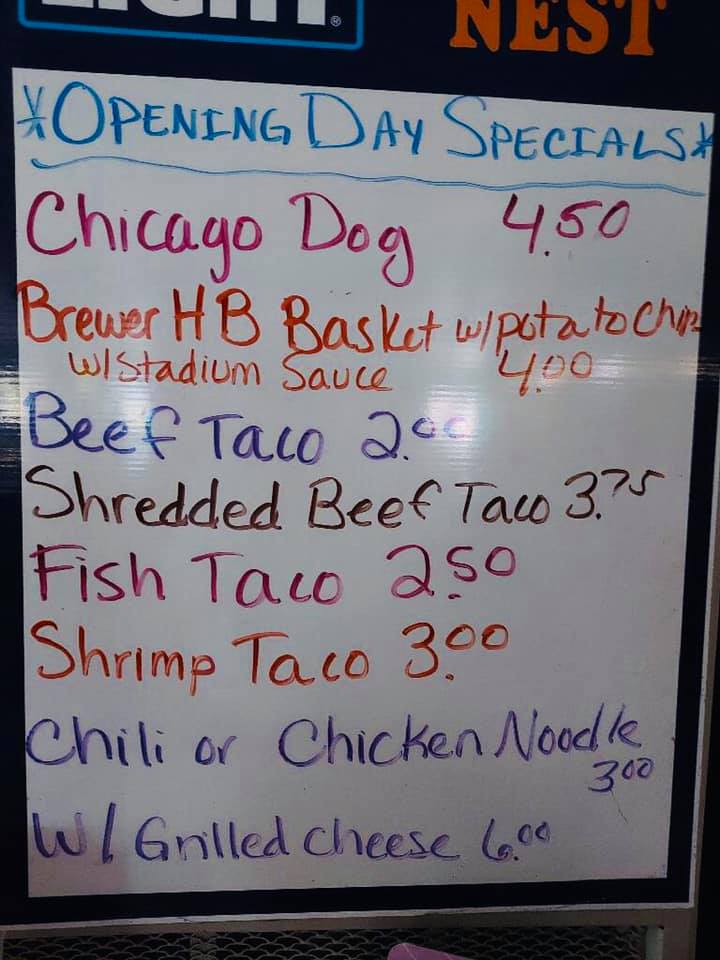 LIGHT®
NEST
*OPENING DAY SPECIALS*
Chicago Dog 4.50
Brewer HB Basket w/potato chips
w/Stadium Sauce 4.00
Beef Taco 2.00
Shredded Beef Taco 3.75
Fish Taco 2.50
Shrimp Taco 3.00
Chili or Chicken Noodle
3.00
W/ Grilled cheese 6.00